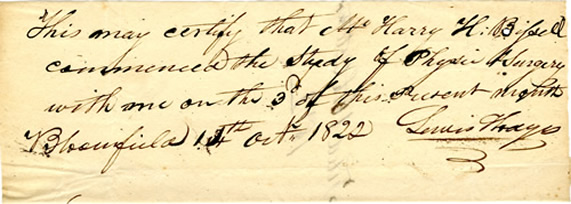 This may certify that Mr Harry H. Bissell
commenced the Study of Physic & Surgery
with me on the 3d of this Present Month
Bloomfield 14th Octr 1822 Lewis Hayes